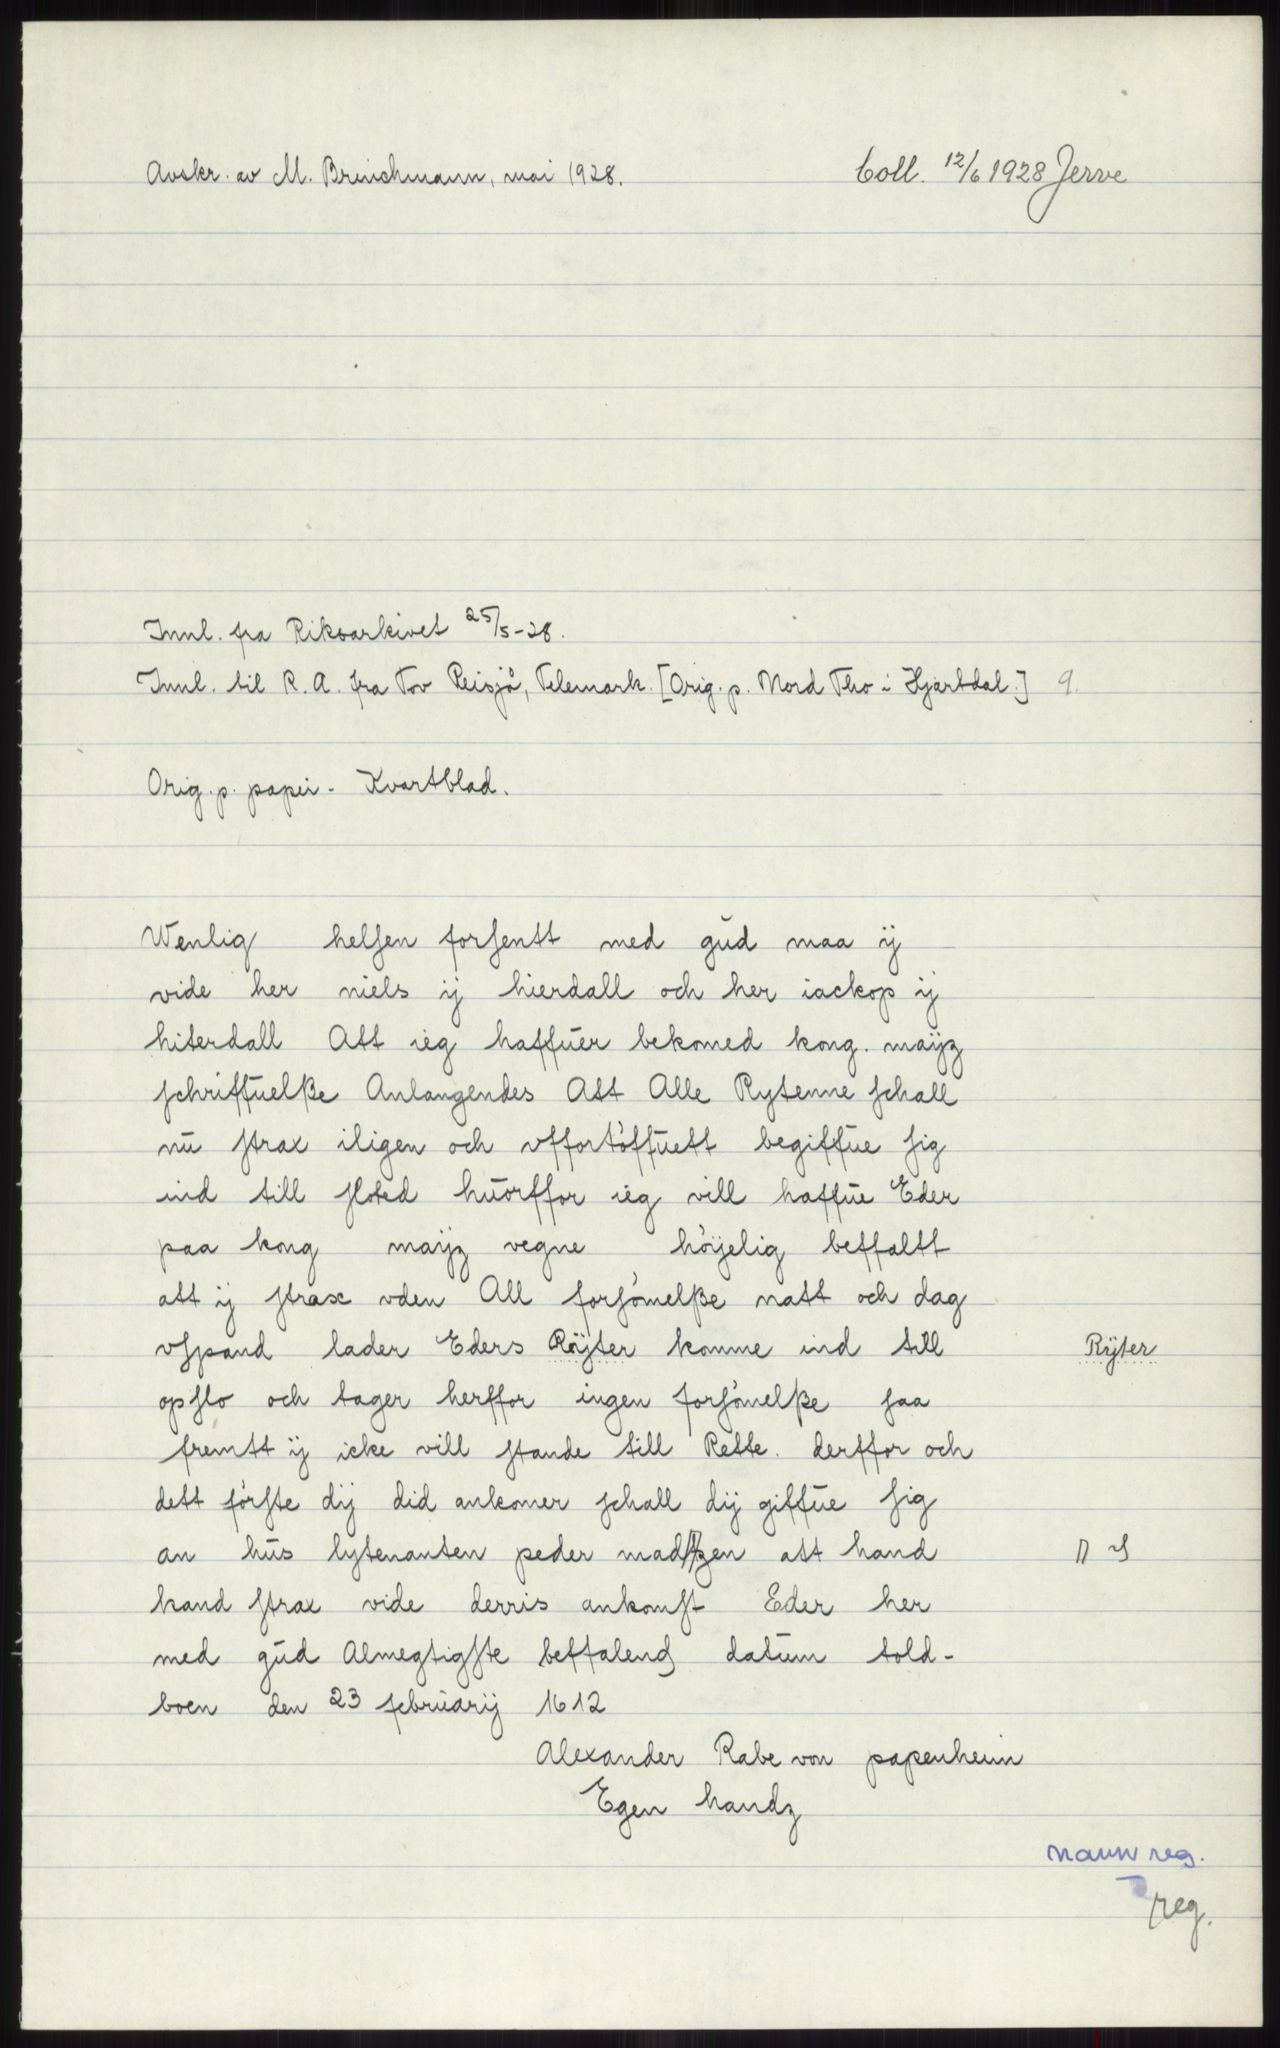 Avskr. av M. Brinchmann, mai 1928.
Coll. 12/6 1928 Jerve
Innl. fra Riksarkivet 25/5-28.
Innl. til R. A. fra Tov Reisjå, Telemark. [Orig. p. Nord Tho i Hjartdal.] 9.
Orig. p. papir. Kvartblad.
Wenlig helſen forſentt med gud maa ÿ
vide her niels ÿ hierdall och her iackop ÿ
hiterdall Att ieg haffuer bekomed kong. maÿz
ſchriffuelße Anlangendes Att Alle Rytenne ſchall
nu ſtrax iligen och vffortöffuett begiffue ſig
ind till ſloted huorffor ieg vill haffue Eder
paa kong maÿz vegne höÿelig beffaltt
att ÿ ſtrax vden All forſömelße natt och dag
vſpand lader Eders Rÿter komme ind till
Rÿter
opſlo och tager herffor ingen forſömelße ſaa
fremtt ÿ icke vill ſtande till Rette. derffor och
dett förſte dÿ did ankomer ſchall dÿ giffue ſig
an hus lytenanten peder madſzen att hand
kand ſtrax vide derris ankomſt Eder her
med gud Almegtigſte beffalend datum told-
boen den 23 februarÿ 1612
Alexander Rabe von papenheim
Egen handz
navnreg.
reg.